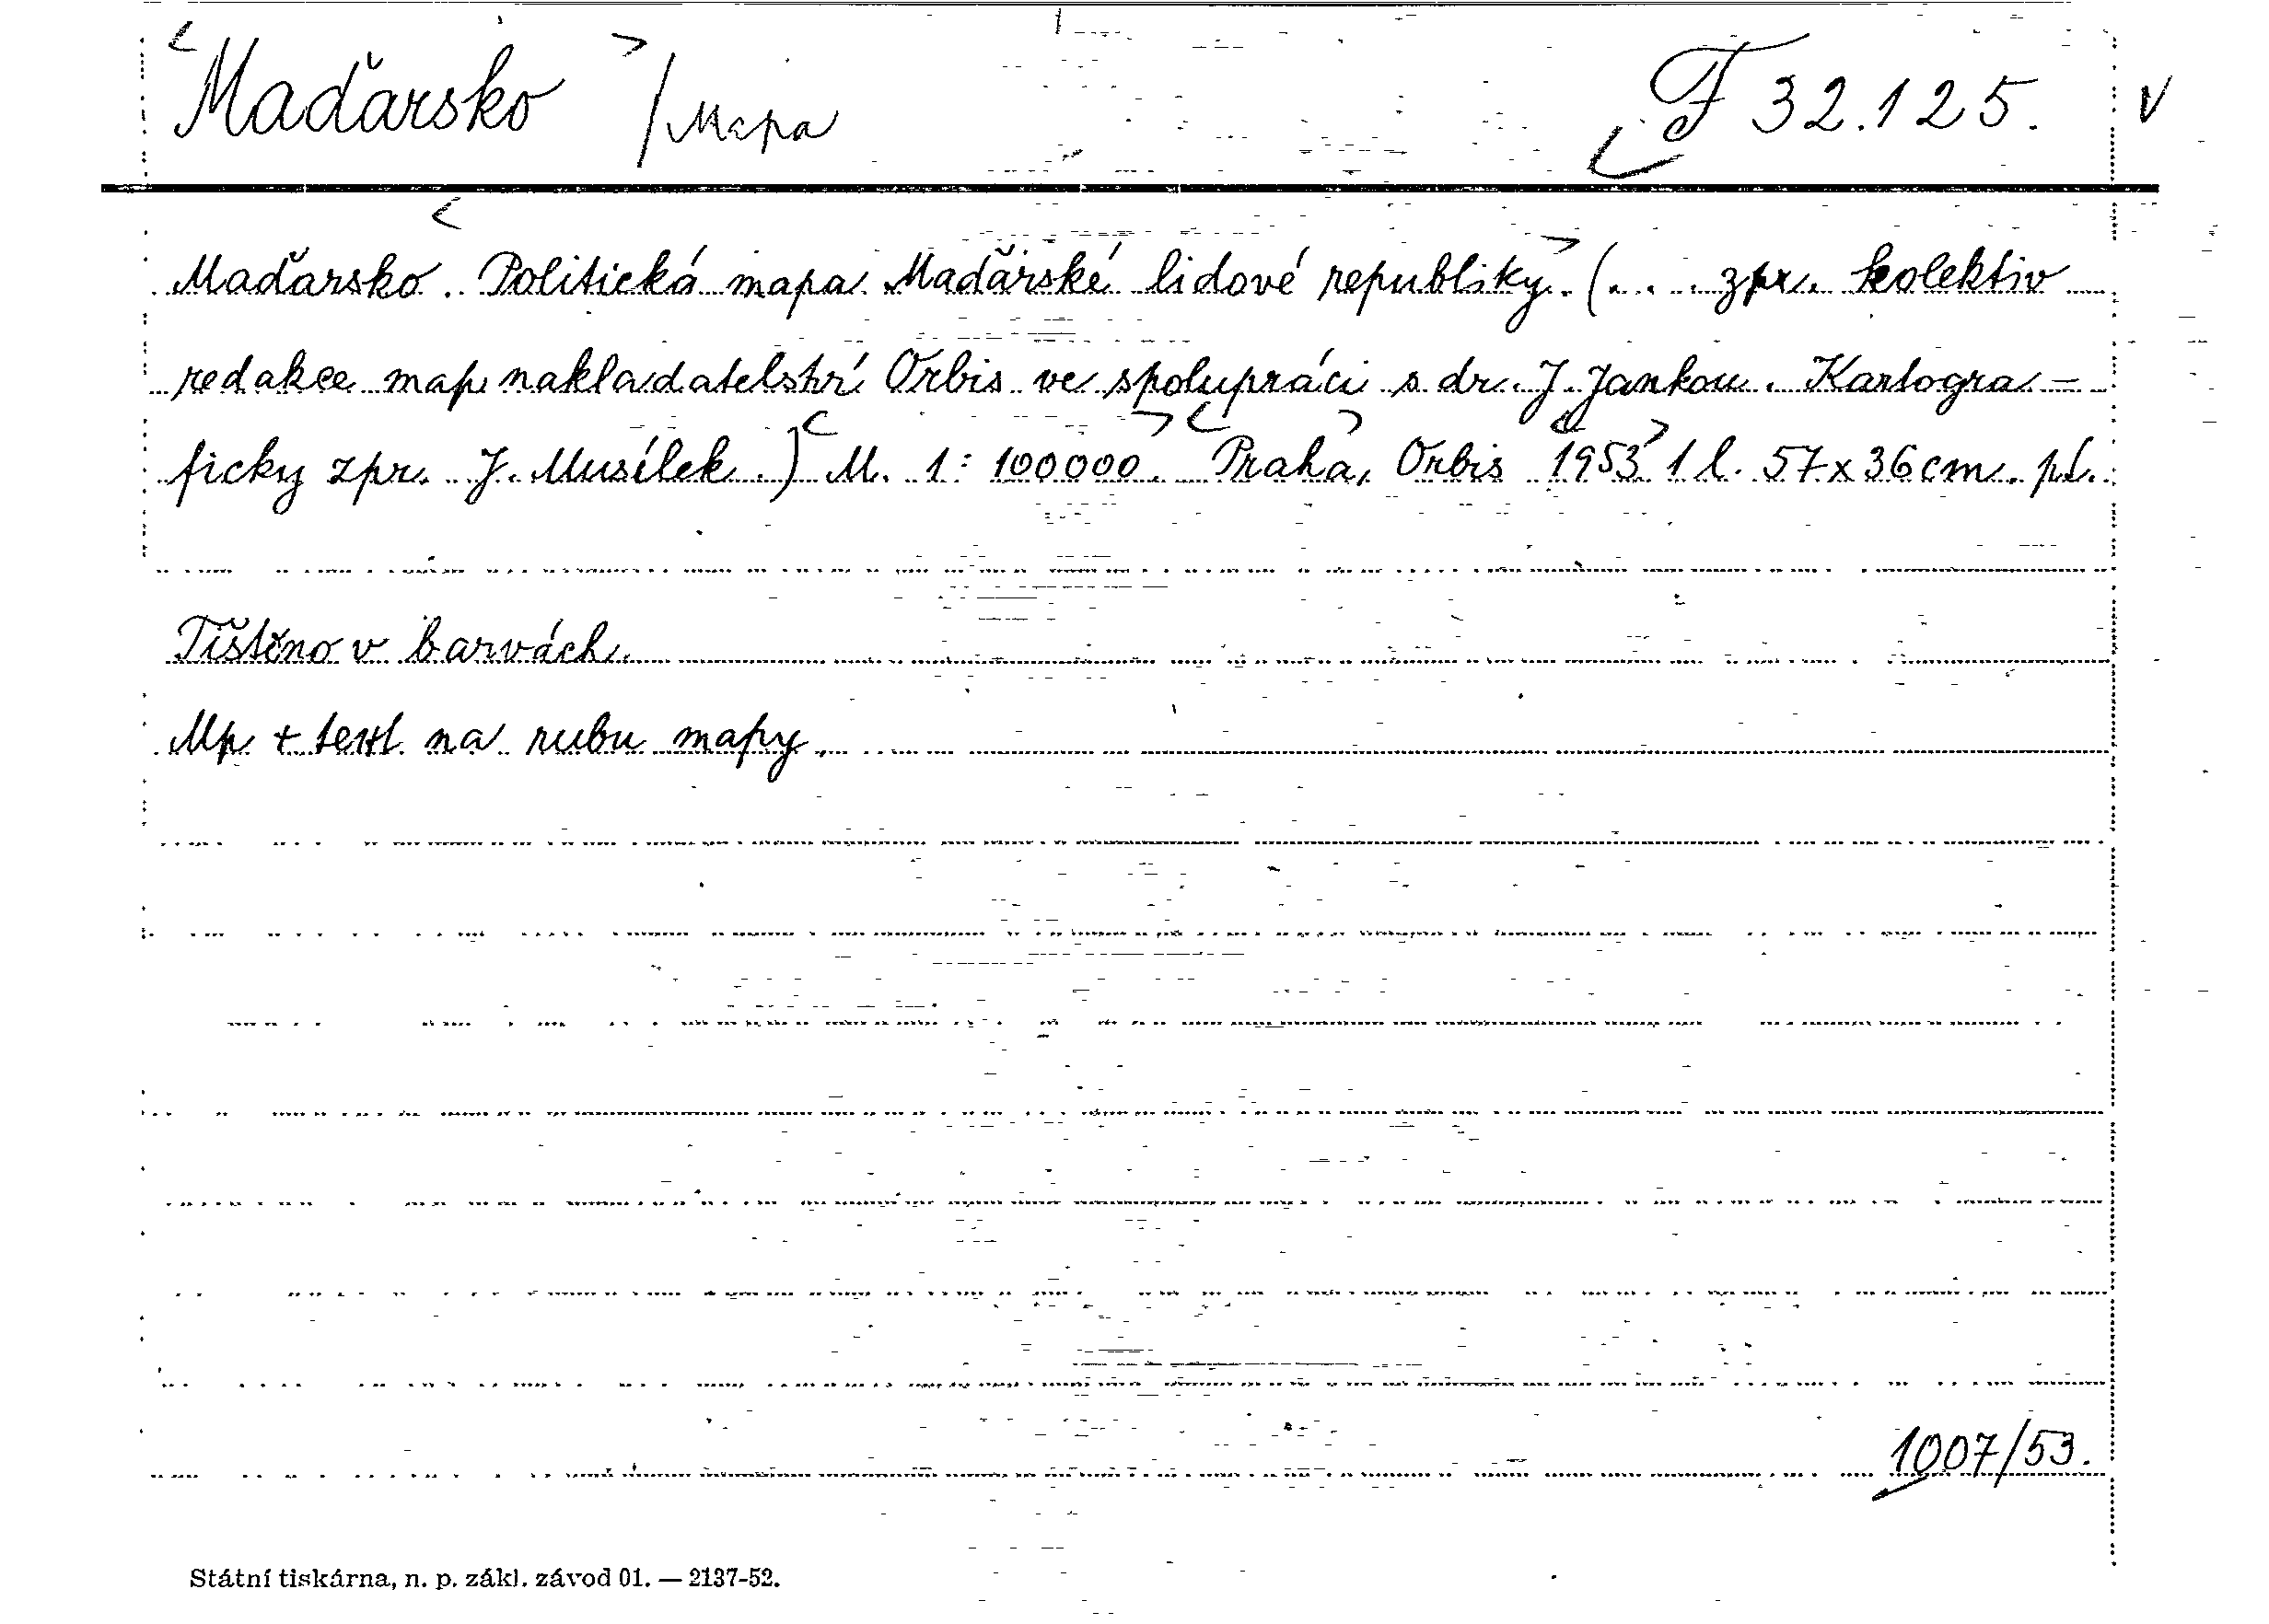 Maďarsko / Mapa F 32.125. V
Maďarsko. Politická mapa Maďarské lidové republiky. (... zpr. kolektiv
redakce map nakladatelství Orbis ve spolupráci s dr. J. Jankou. Kartogra-
ficky zpr. J. Musílek.) M. 1:100000. Praha, Orbis 1953. 1 l. 57x36cm. př.
Tištěno v barvách.
Mp + text na rubu mapy.
1007/53.
Státní tiskárna, n. p. zákl. závod 01. — 2137-52.